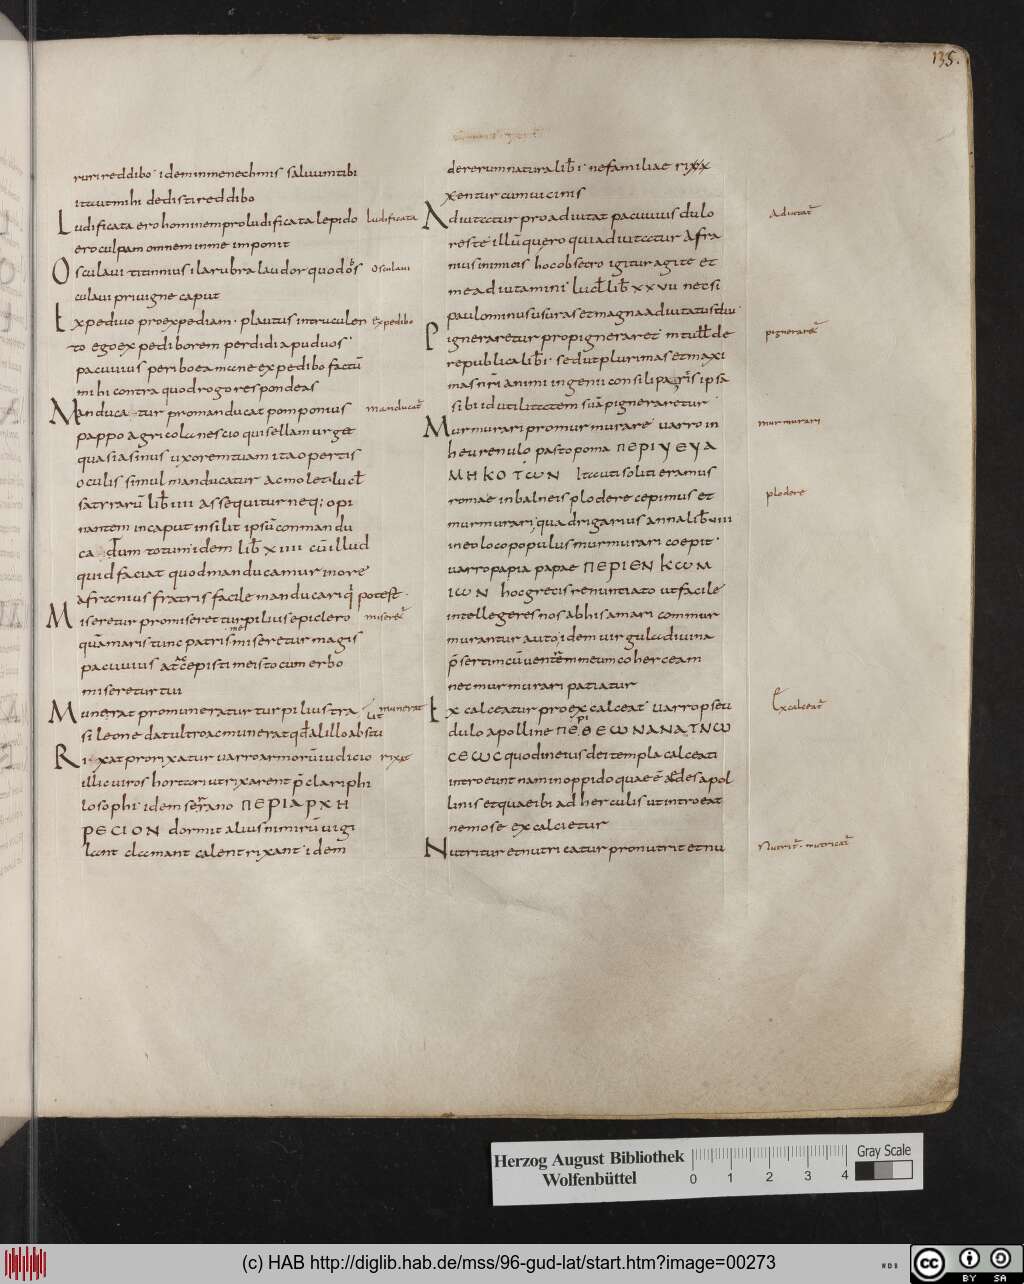 135.
ruri reddibo idem in menechmis salvum tibi
ita ut mihi dedisti reddibo
Ludificata ero hominem pro ludificata lepido
ludificata
ero culpam omnem in me imponit
Osculavi titinnius ilarubra laudor quod os
osculavi
culavi privigne caput
Expedivo pro expediam · plautus in truculen
expedibo
to ego expedibo rem perdidi apud vos
pacuvius periboea mane expedibo factū
mihi contra quod rogo respondeas
Manducatur pro manducat pomponius
manducat̄
pappo agricola nescio quis ellam urget
quasi asinus uxorem tuam ita opertis
oculis simul manducatur ac molet lucił
satyrarū lib̄ IIII assequitur neq; opi
nantem in caput insilit ipsū commandu
cat dum totum idem lib̄ XIIII cū illud
quid faciat quod manducamur in ore
afranius fratris facile manducari q potest·
Miseretur pro miseret turpilius epiclero
miseret̄
quā maris tunc patris me miseretur magis
pacuvius atq; cepisti meisto cum erbo
miseretur tui
Munerat pro muneratur turpilius tra
ut munerat
si leone dat ultro ac munerat quod alillo abstu
Rixat pro rixatur varro armorū iudicio
rixat
illic viros hortari ut rixarent p̄clari phi
losophi idem serrano ΠΕΡΙΑΡΧΗ
ΡΕCΙΟΝ dormit alius nimirū vigi
lant clamant calent rixant idem
de rerum natura lib̄ I ne familiae rixx
xentur cum vicinis
Adiutatur pro adiutat pacuvius dulo
adiutat̄
reste illū quero qui adiutatur Afra
nius inimicis hoc obsecro igitur agite et
me adiutamini lucił lib̄ XXVII nec si
paulo minus usuras et magna adiutatus diu
Pigneraretur pro pigneraret m tułł de
pigneraret̄
re publica lib̄ I · sed ut plurimas et maxi
mas nr̄i animi ingenii consili partis ipsa
sibi id utilitatem suā pigneraretur
Murmurari pro murmurare varro in
murmurari
heurenulo pasto poma ΠΕΡΙΨΕΥΔ
ΜΗΚΟΤωΝ Itaut i soliti eramus
romae in balneis plodere cepimus et
plodere
murmurari quadrigarius anna lib̄ VIII
in eo loco populus murmurari coepit
varro papia papae ΠΕΡΙΕΝΚωΜ
ΙωΝ hoc grecis renuntiato ut facile
intellegeres nos ab his amari commur
murantur auto idem virgula divina
p̄sertim cū ventrem meum coherceam
nec murmurari patiatur
Excalceatur pro excalceat varro pseu
Excalceat̄
dulo apolline ΠΕΡΙ ΘΕωΝΑΝΑΓΝω
CΕωC quod in eius dei templa calceati
introeunt nam in oppido quae ē aedes apol
linis et quae ibi ad herculis ut introeat
nemo se excalcietur
Nutritur et nutricatur pro nutrit et nu
Nutrit̄ · nutricat̄
Herzog August Bibliothek
Wolfenbüttel
0 1 2 3 4
Gray Scale
(c) HAB http://diglib.hab.de/mss/96-gud-lat/start.htm?image=00273
WDB
cc BY SA